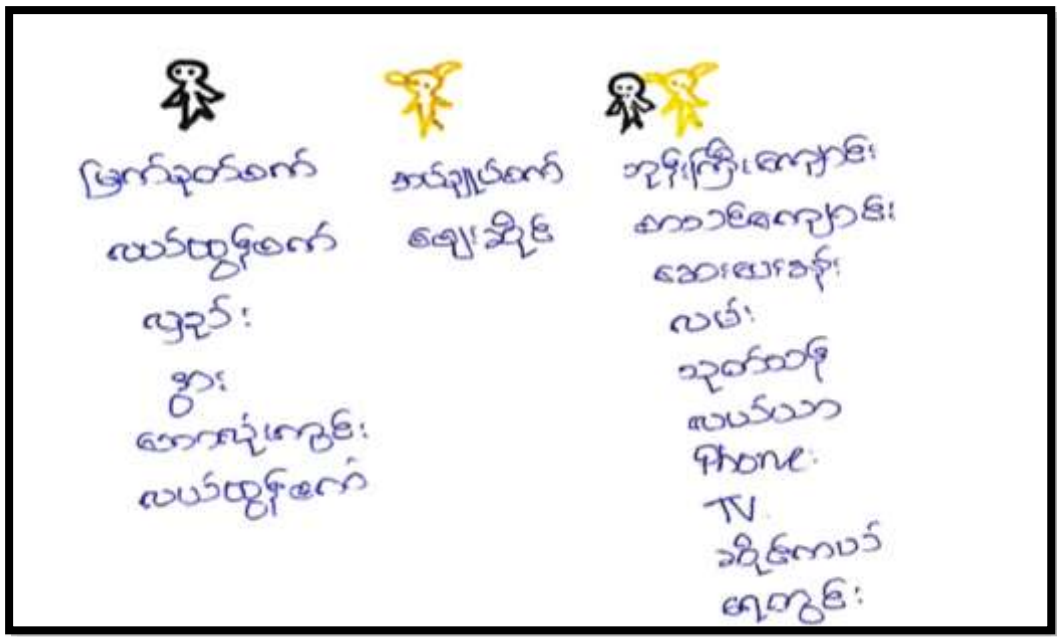 မြက်ခုတ်စက်
လယ်ထွန်စက်
လှည်း
နွား
ဘောလုံးကွင်း
လယ်ထွန်စက်
အပ်ချုပ်စက်
ဈေးဆိုင်
ဘုန်းကြီးကျောင်း
စာသင်ကျောင်း
ဆေးပေးခန်း
လမ်း
သုတ်သန်
လယ်ယာ
Phone
TV
ဆိုင်ကယ်
ရေတွင်း